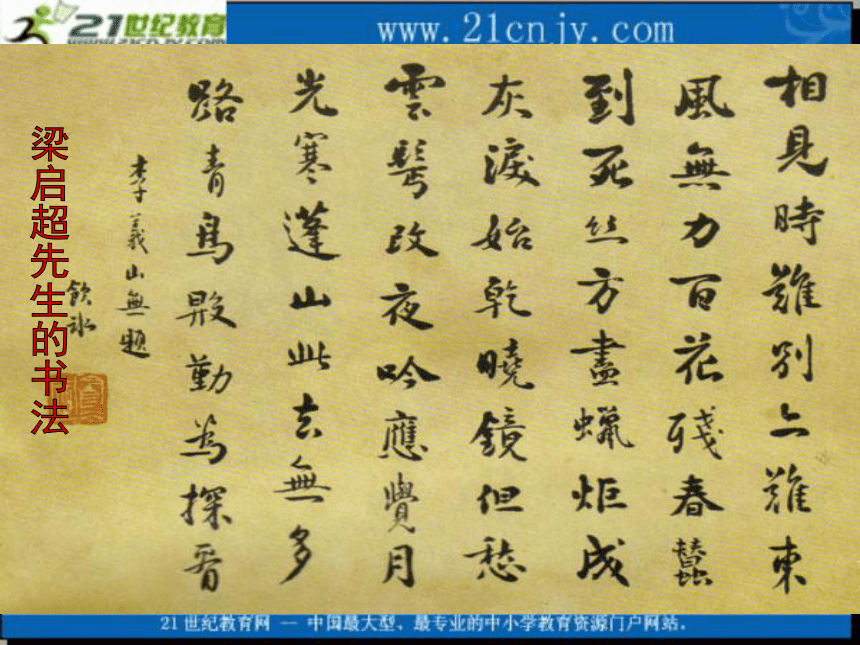 21世纪教育
WWW.21CNJY.COM
www.21cnjy.com
相見時難別亦難東
風無力百花殘春蠶
到死絲方盡蠟炬成
灰淚始乾曉鏡但愁
雲鬢改夜吟應覺月
光寒蓬山此去無多
路青鳥殷勤為探看
李義山無題
飲冰
梁启超先生的书法
21世纪教育网 -- 中国最大型、最专业的中小学教育资源门户网站.